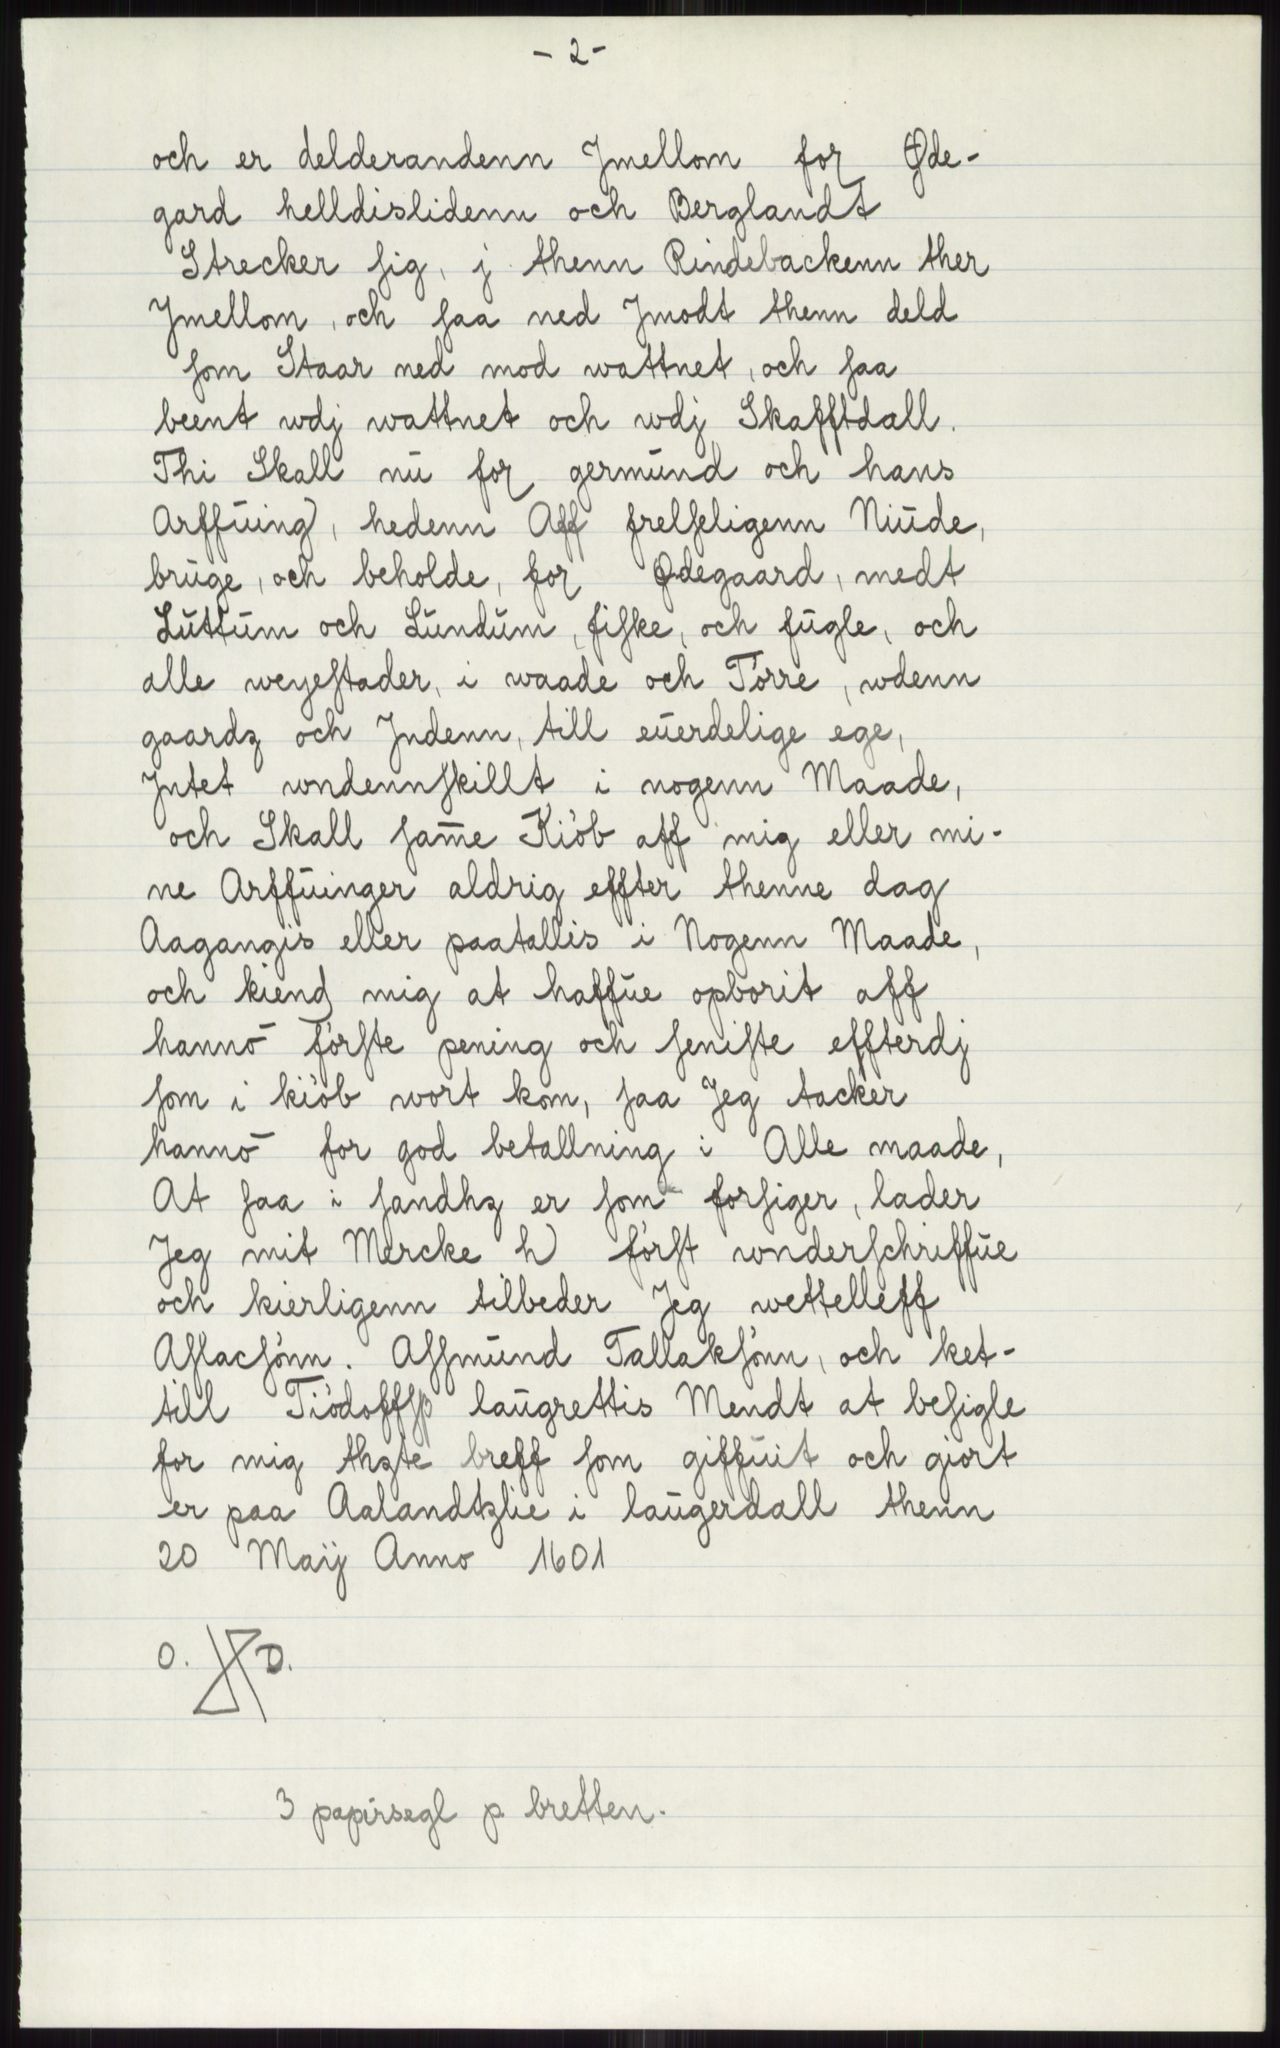 - 2 -
och er delderandenn Jmellom for Øde-
gard helldislidenn och Berglandt
Strecker sig, j thenn Rindebackenn ther
Jmellom, och saa ned Jmodt thenn deld
som Staar ned mod wattnet, och saa
beent wdj wattnet och wdj Skafftdall.
Thi Skall nū for germūnd och hans
Arffūing), hedenn Aff frelseligenn Niūde,
brūge, och beholde, for Ødegaard, medt
Lūttūm och Lūndūm, fiske, och fūgle, och
alle weyestader, i waade och Törre, wdenn
gaardz och Jndenn, till eūerdelige ege,
Jntet wndennskillt i nogenn Maade,
och Skall sam̄e Kiöb aff mig eller mi-
ne Arffūinger aldrig effter thenne dag
Aagangis eller paatallis i Nogenn Maade,
och kiend mig at haffūe opborit aff
hannō förste pening och seniste effterdj
som i kiöb wort kom, saa Jeg tacker
hannō for god betallning i Alle maade,
At saa i sandhz er som forsiger, lader
Jeg mit Mercke h) först wnderschriffūe
och kierligenn tilbeder Jeg wettelleff
Aslacsönn. Assmūnd Tallaksönn, och ket-
till Tiödoffsp laūgrettis Mendt at besigle
for mig thzte breff som giffūit och giort
er paa Aalandtzlie i laūgerdall thenn
20 Maÿ Anno 1601
O. D.
3 papirsegl p. bretten.